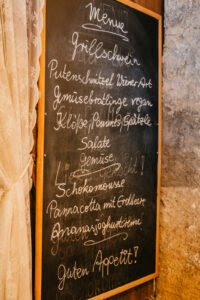 Menue
Grillschwein
Putenschnitzel Wiener Art
Gmüsebratlinge vegan
Klöße, Pommes, Spätzle
Salate
Gemüse
Schokomousse
Pannacotta mit Erdbeer
Ananasjoghurtcreme
Guten Appetit!